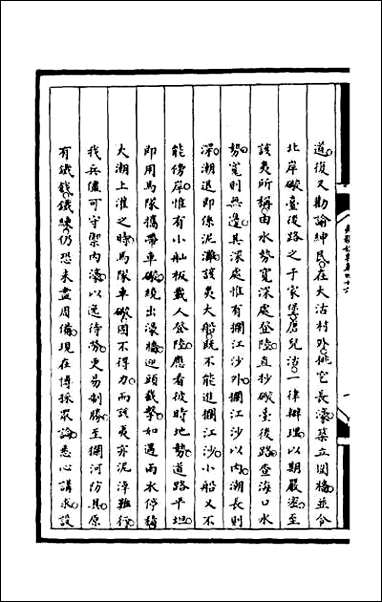 道復又勸諭紳民在大沽村外挑它長濠築立圍牆並令
北岸礮臺後路之于家堡唐兒沽一律辦理以期嚴密至
該夷所稱由水勢寬深處登陸直抄礮臺後路查海口水
勢寬則無邊其深處惟有攔江沙外攔江沙以內潮長則
深潮退即係泥灘該夷大船既不能進攔江沙小船又不
能傍岸惟有小舢板載人登陸應看彼時地勢道路平坦
即用馬隊攜帶車礮繞出濠牆迎頭截擊如遇雨水停積
大潮上灘之時馬隊車礮固不得力而該夷亦泥濘難行
我兵儘可守禦內濠以逸待勞更易制勝至攔河防具原
有鐵鏈鐵練仍恐未盡周備現在博採眾論悉心講求設